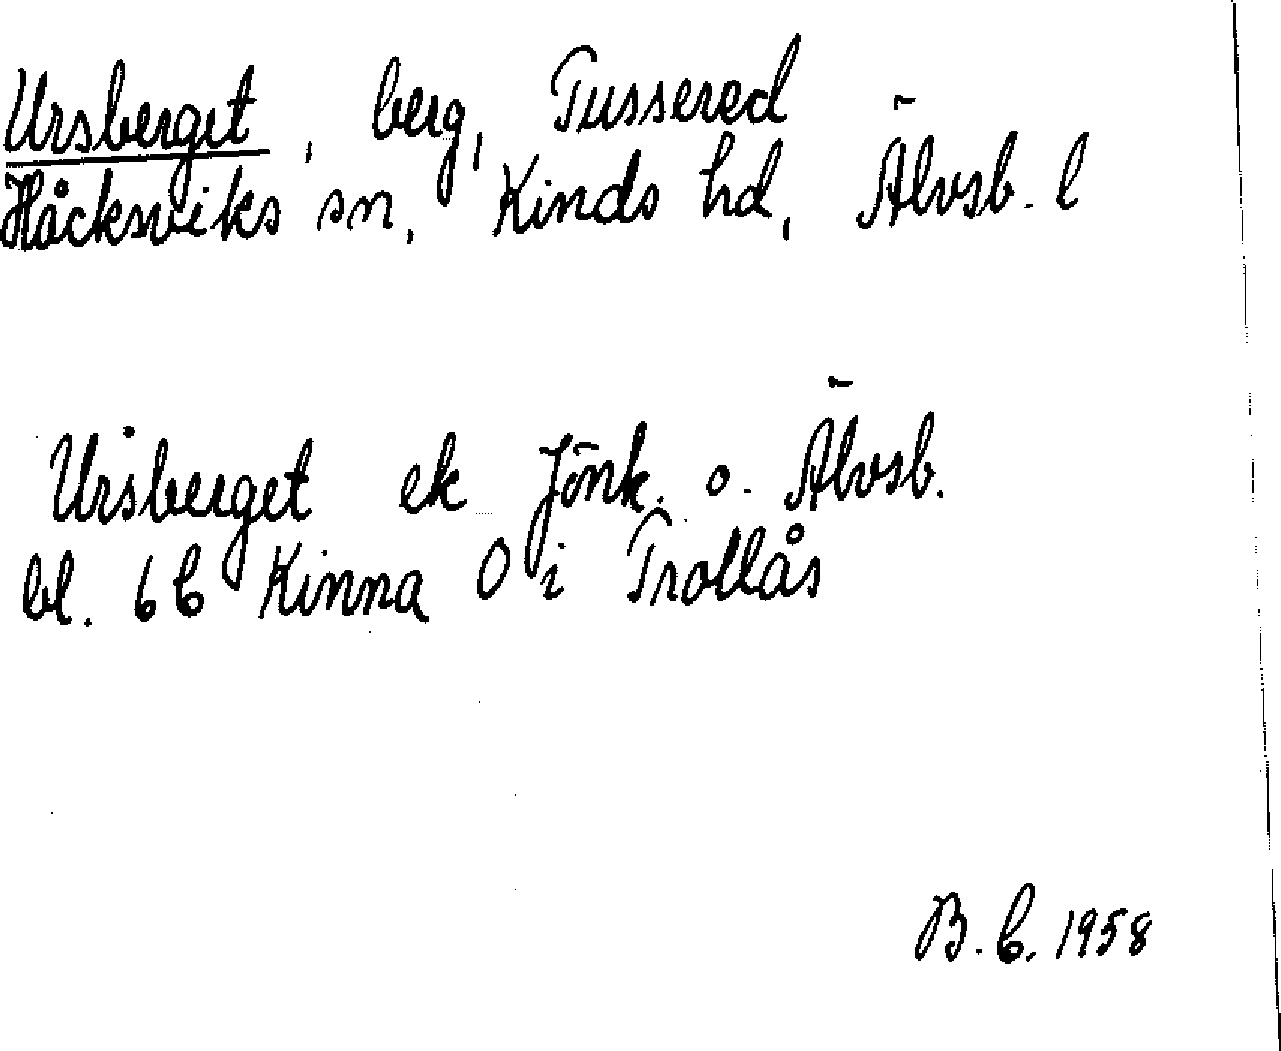 Ursberget, berg, Tussered
Håcksviks sn, Kinds hd, Älvsb. l
Ursberget ek Jönk. o. Älvsb.
bl. 6 C Kinna O i Trollås
B. C. 1958